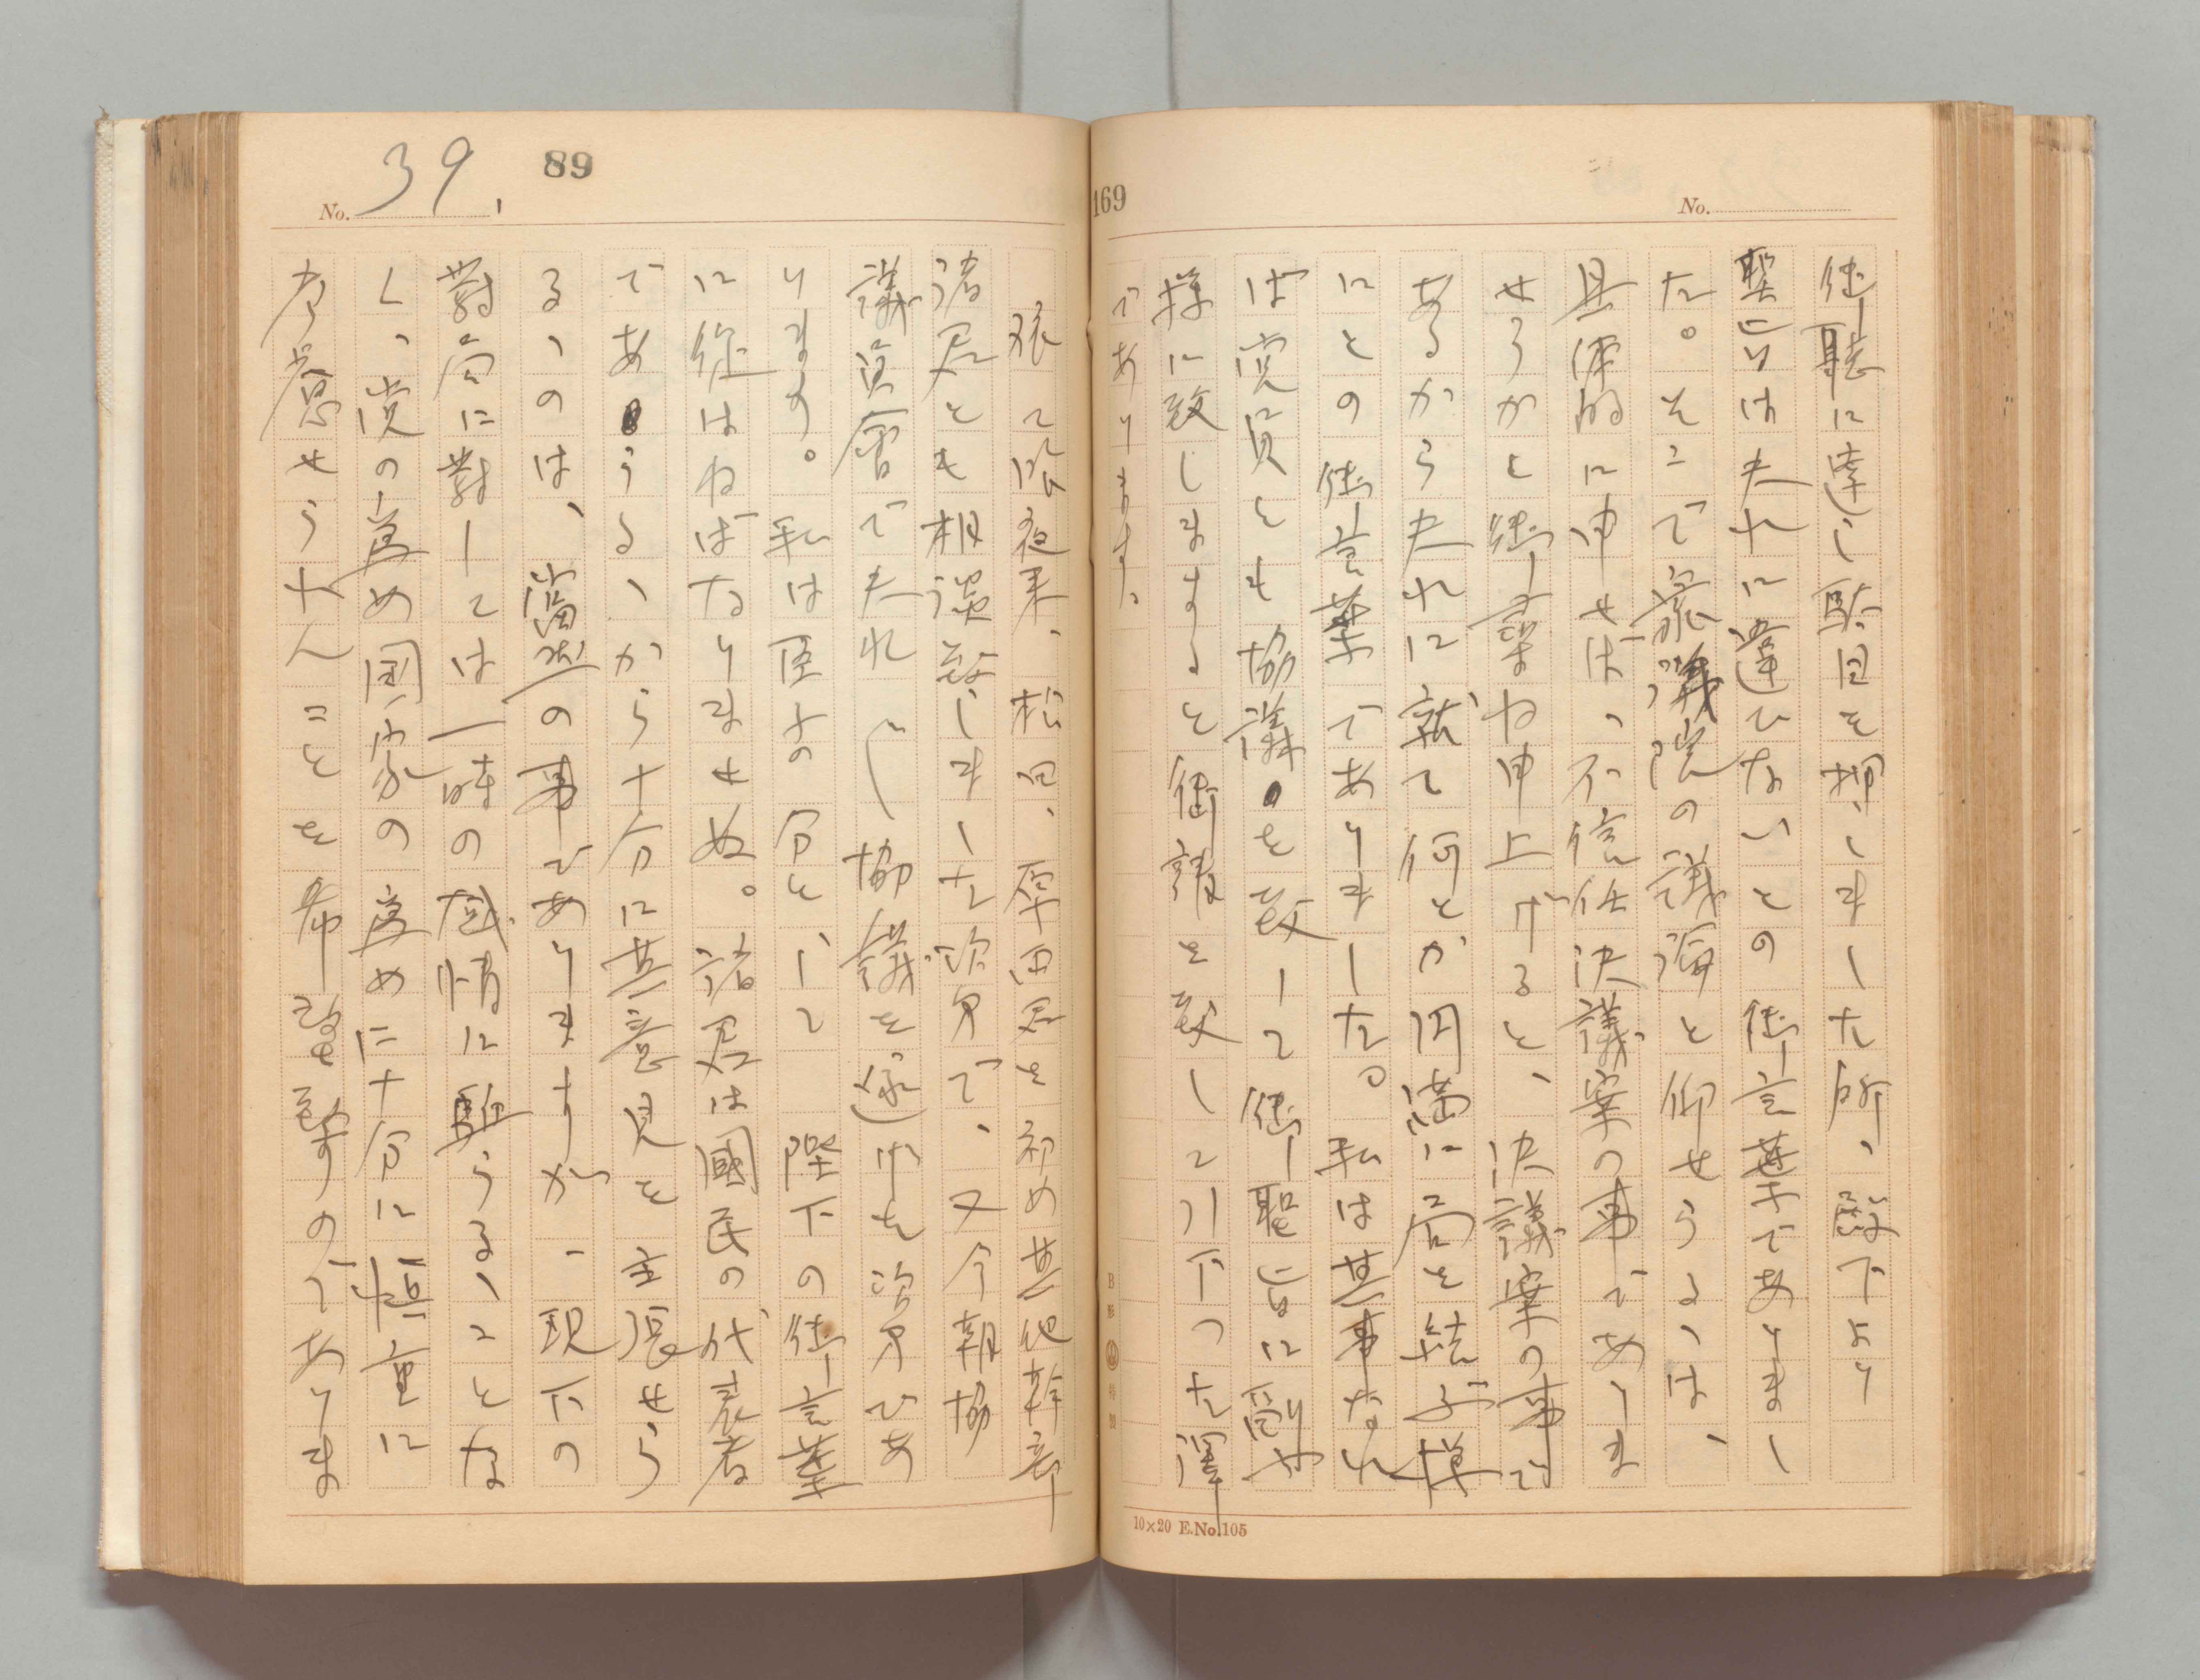 169
No.
御聽に達し駄目を押しました所、殿下より
聖旨は夫れに違ひないとの御言葉でありまし
た。そこで衆議院の議場と仰せらるゝは、
具体的に申せば、不信任決議案の事でありま
せうかと御尋ね申上げると、決議案の事で
あるから夫れに就て何とか円満に局を結ぶ様
にとの御言葉でありました。私は其事なれ
ば党員とも協議を致して御聖旨に副や
様に致しますると御請を致して引下つた譯
であります。
10×20 E.No.105
89
No. 39.
依て昨夜来、松田、原田君を初め其他幹部
諸君とも相談致しました次第で、又今朝協
議員會で夫れ〲協議を遂げた次第であ
ります。私は臣下の分として 陛下の御言葉
に從はねばなりませぬ。諸君は國民の代表者
であうるゝから十分に其意見を主張せら
るゝのは、當然の事でありますが、現下の
對局に對しては一時の感情に駆らるゝことな
く、党の為め国家の為めに十分に慎重に
考慮せられんことを希望致すのであります